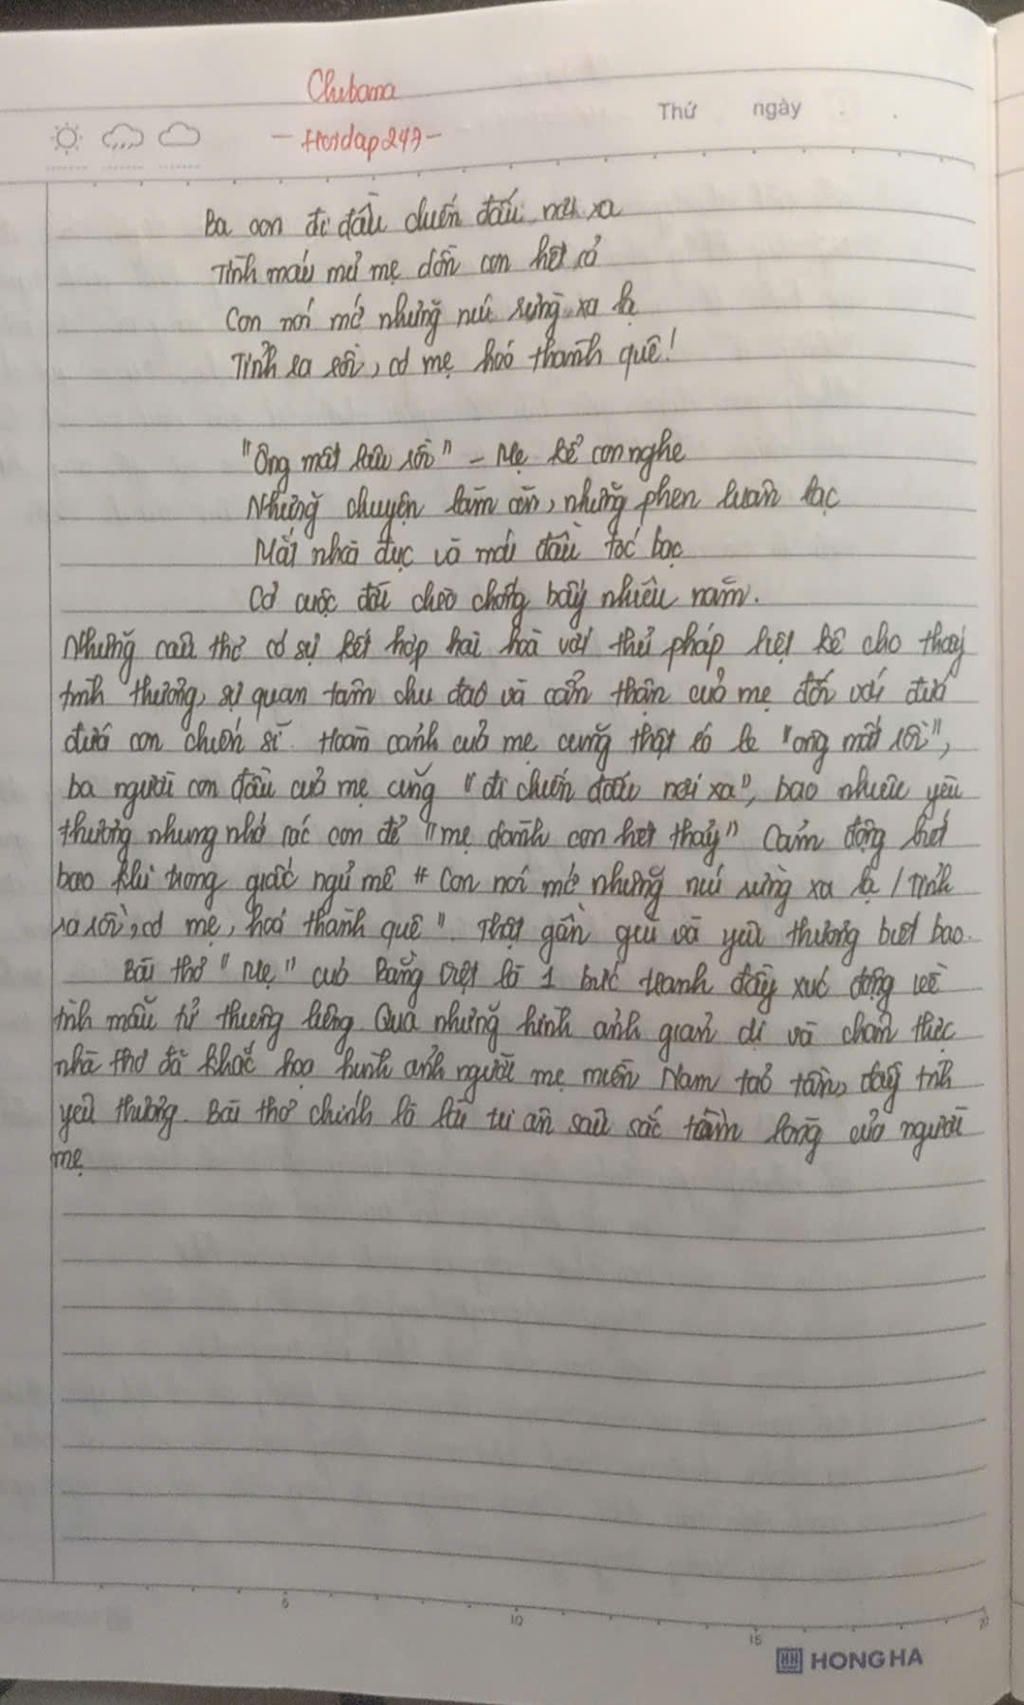 Chubama
- Hoidap247 -
Thứ ngày
Ba con đi đầu chiến đấu nơi xa
Tình máu mủ mẹ dồn con hết cả
Con nói mớ những núi rừng xa lạ
Tỉnh ra rồi, có mẹ hoá thành quê!
"Ông mất lâu rồi" - Mẹ kể con nghe
Những chuyện làm ăn, những phen luân lạc
Mắt nhoà đục và mái đầu tóc bạc
Cả cuộc đời chèo chống bấy nhiêu năm.
Những câu thơ có sự kết hợp hài hoà với thủ pháp liệt kê cho thấy
tình thương, sự quan tâm chu đáo và cẩn thận của mẹ đối với đứa
đứa con chiến sĩ. Hoàn cảnh của mẹ cũng thật éo le "ông mất rồi",
ba người con đầu của mẹ cũng "đi chiến đấu nơi xa", bao nhiêu yêu
thương nhung nhớ các con để "mẹ dành con hết thảy" Cảm động biết
bao khi trong giấc ngủ mê " Con nói mớ những núi rừng xa lạ / Tỉnh
ra rồi, có mẹ, hoá thành quê". Thật gần gũi và yêu thương biết bao.
Bài thơ "Mẹ" của Bằng Việt là 1 bức tranh đầy xúc động về
tình mẫu tử thiêng liêng. Qua những hình ảnh giản dị và chân thực
nhà thơ đã khắc hoạ hình ảnh người mẹ miền Nam tảo tần, đầy tình
yêu thương. Bài thơ chính là lời tri ân sâu sắc tấm lòng của người
mẹ
5 10 15
HONG HA